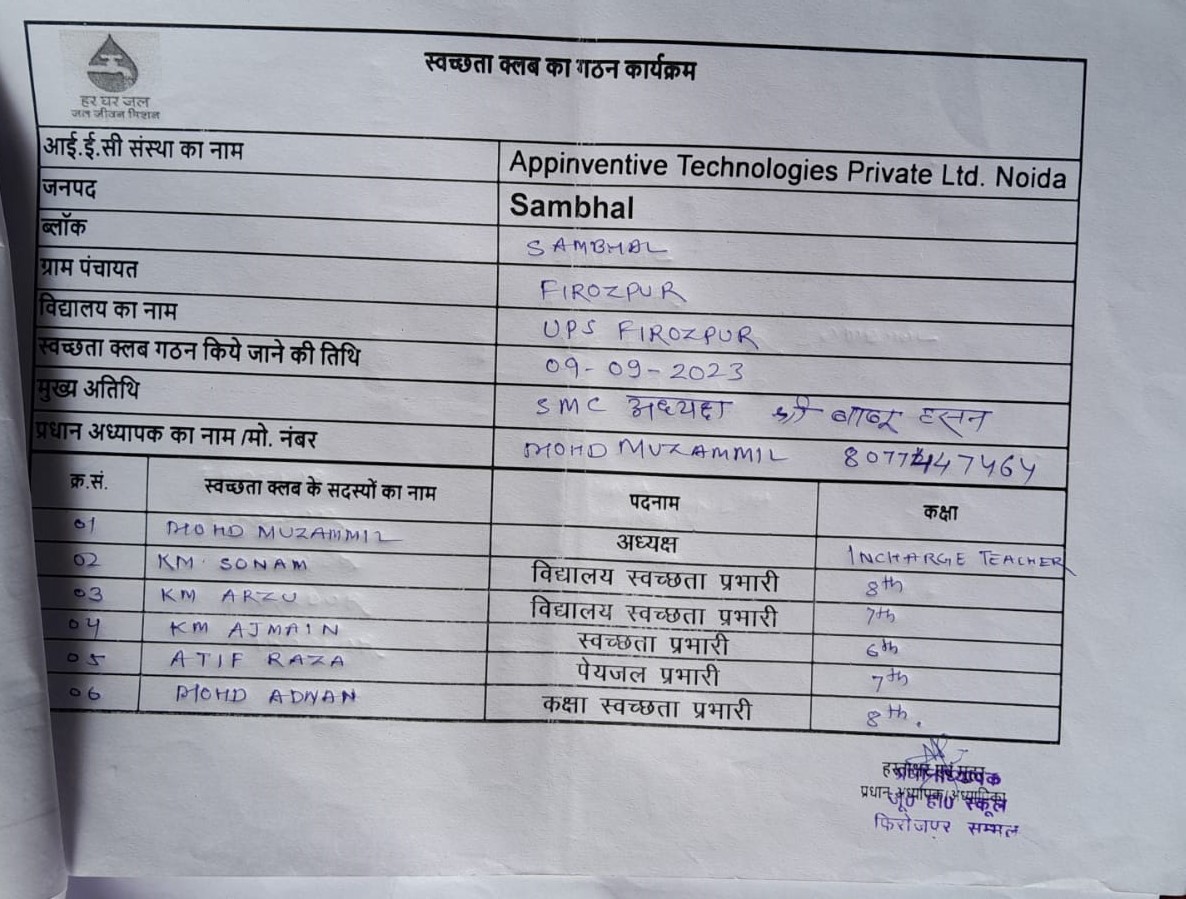 हर घर जल
जल जीवन मिशन
स्वच्छता क्लब का गठन कार्यक्रम
आई.ई.सी संस्था का नाम Appinventive Technologies Private Ltd. Noida
जनपद Sambhal
ब्लॉक SAMBHAL
ग्राम पंचायत FIROZPUR
विद्यालय का नाम UPS FIROZPUR
स्वच्छता क्लब गठन किये जाने की तिथि 09-09-2023
मुख्य अतिथि SMC अध्यक्ष श्री बाबू हसन
प्रधान अध्यापक का नाम /मो. नंबर MOHD MUZAMMIL
क्र.सं. स्वच्छता क्लब के सदस्यों का नाम पदनाम कक्षा
01 MOHD MUZAMMIL अध्यक्ष INCHARGE TEACHER
02 KM. SONAM विद्यालय स्वच्छता प्रभारी 8th
03 KM ARZU विद्यालय स्वच्छता प्रभारी 7th
04 KM AJMAIN स्वच्छता प्रभारी 6th
05 ATIF RAZA पेयजल प्रभारी 7th
06 MOHD ADNAN कक्षा स्वच्छता प्रभारी 8th.
प्रधानाध्यापक
जू0 हा0 स्कूल
फिरोजपुर सम्भल